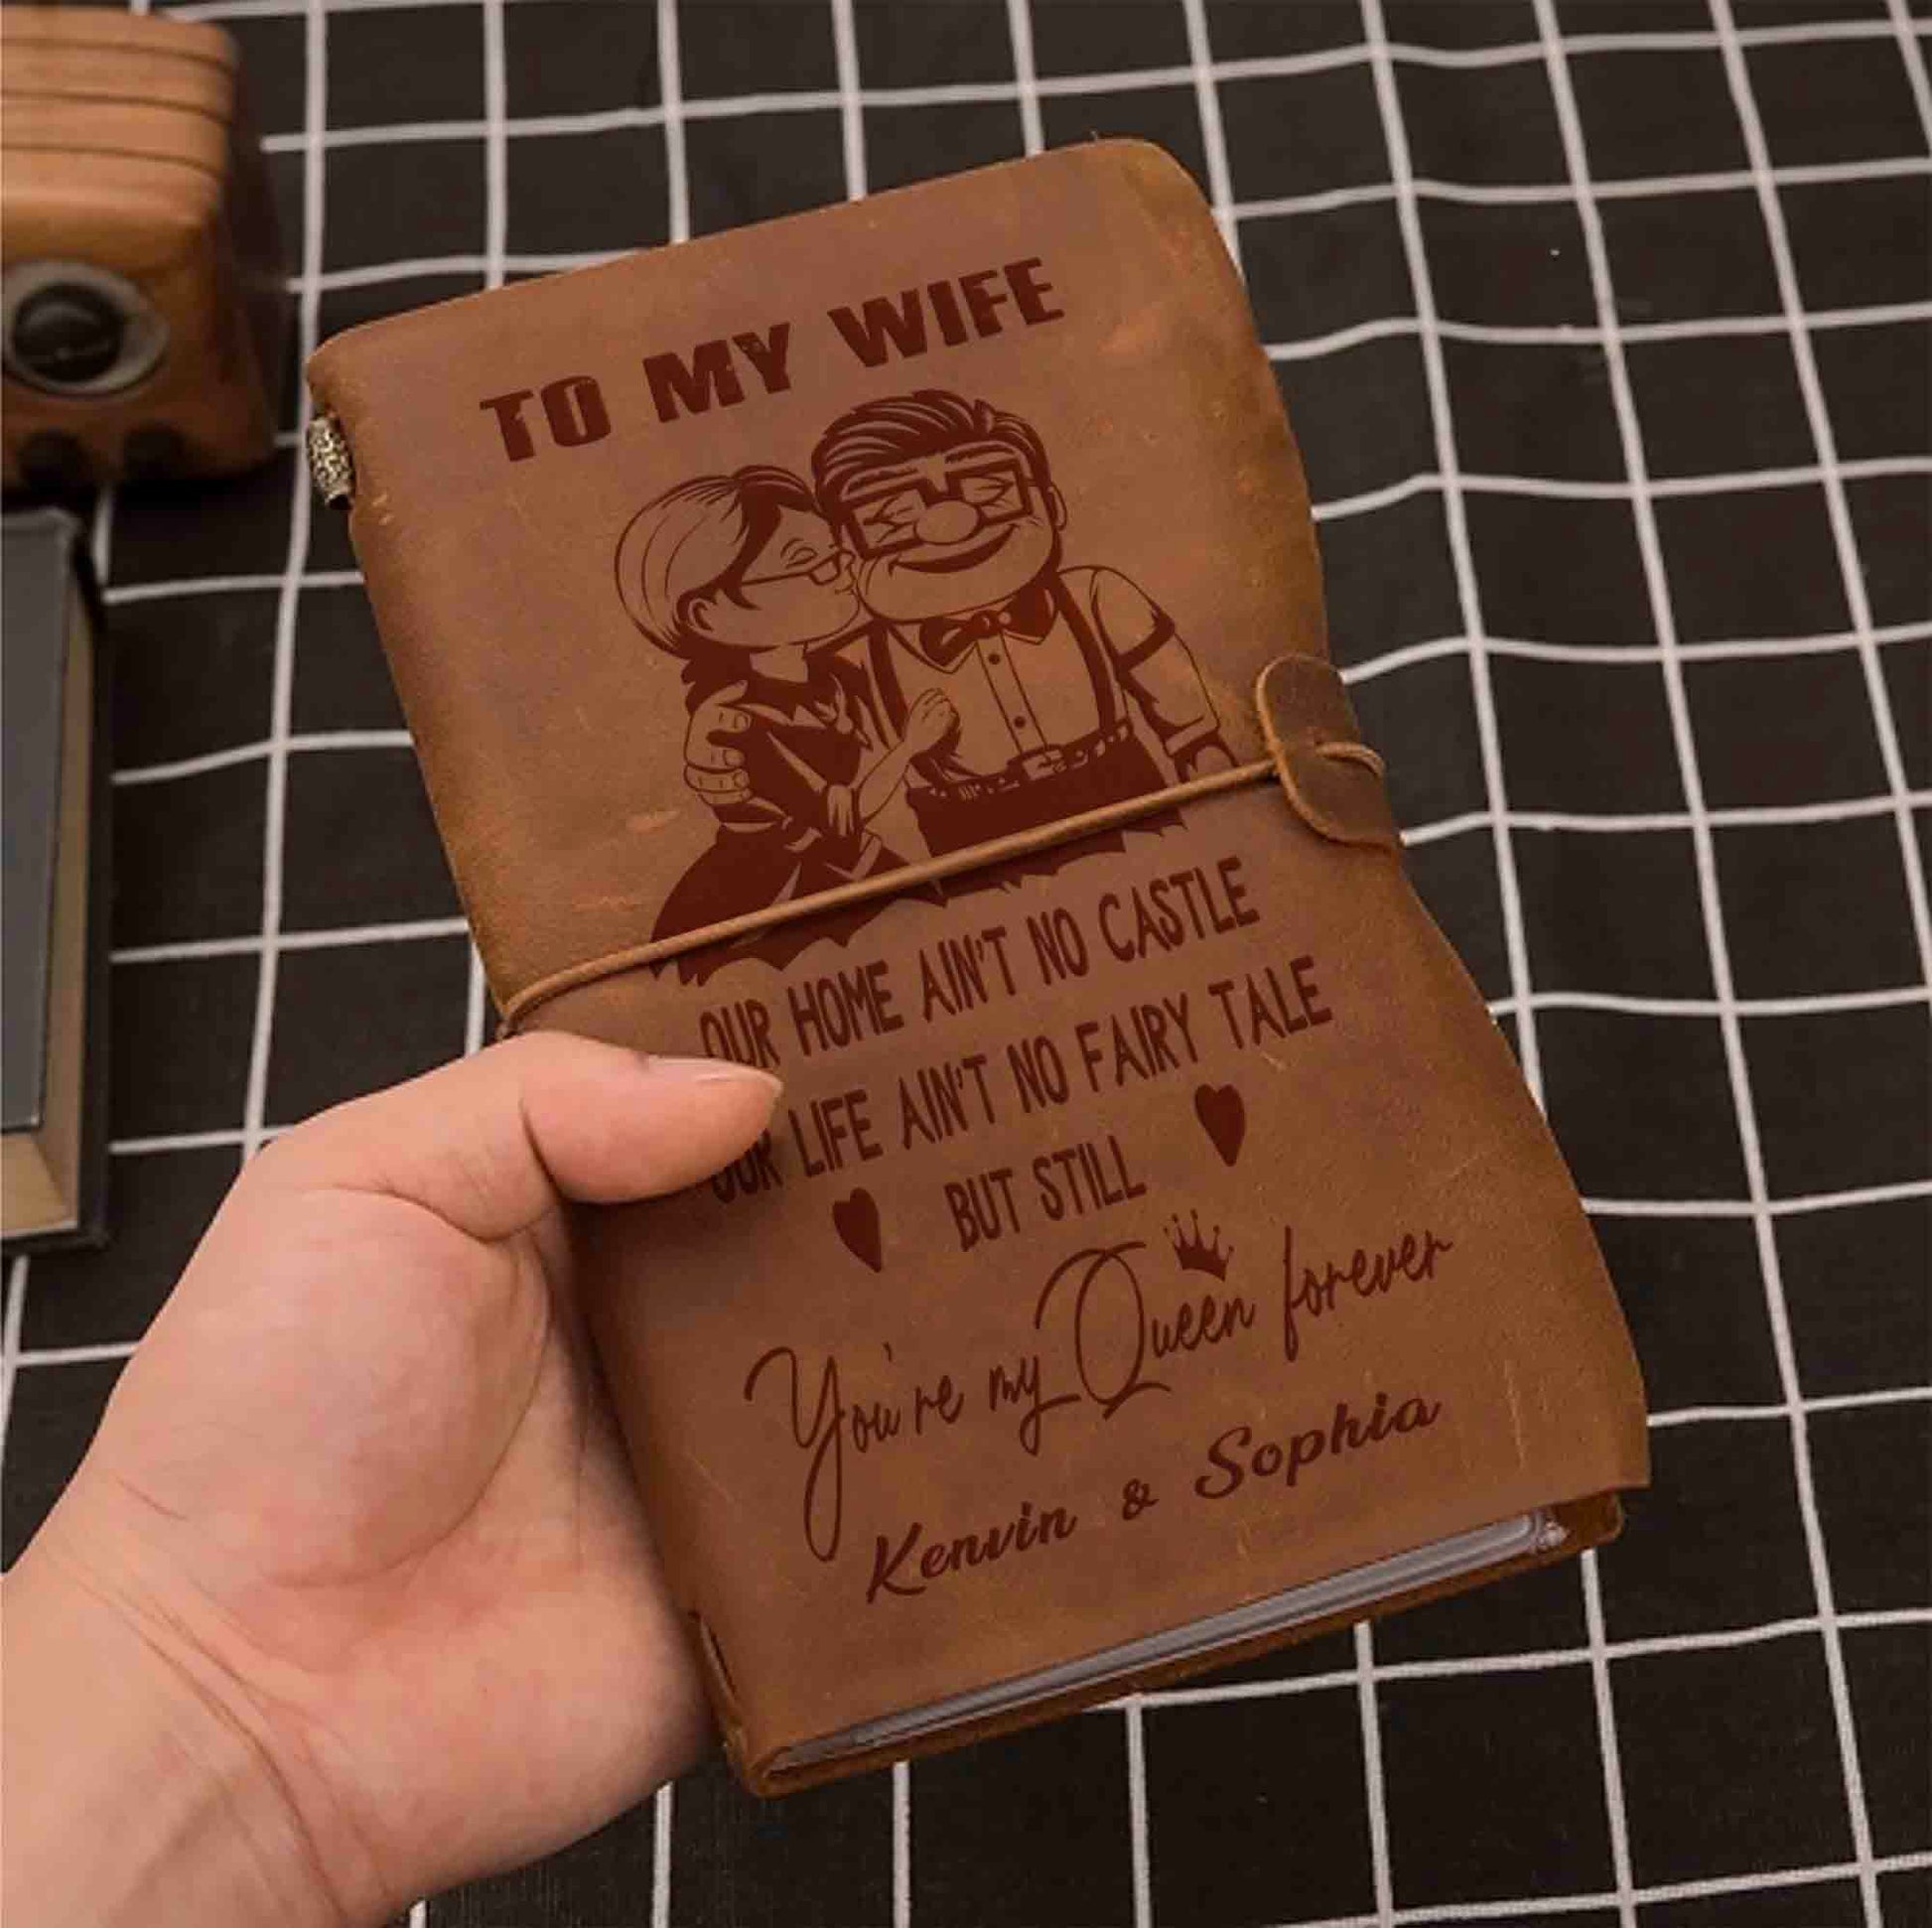 TO MY WIFE
OUR HOME AIN'T NO CASTLE
OUR LIFE AIN'T NO FAIRY TALE
BUT STILL
You're my Queen forever
Kenvin & Sophia